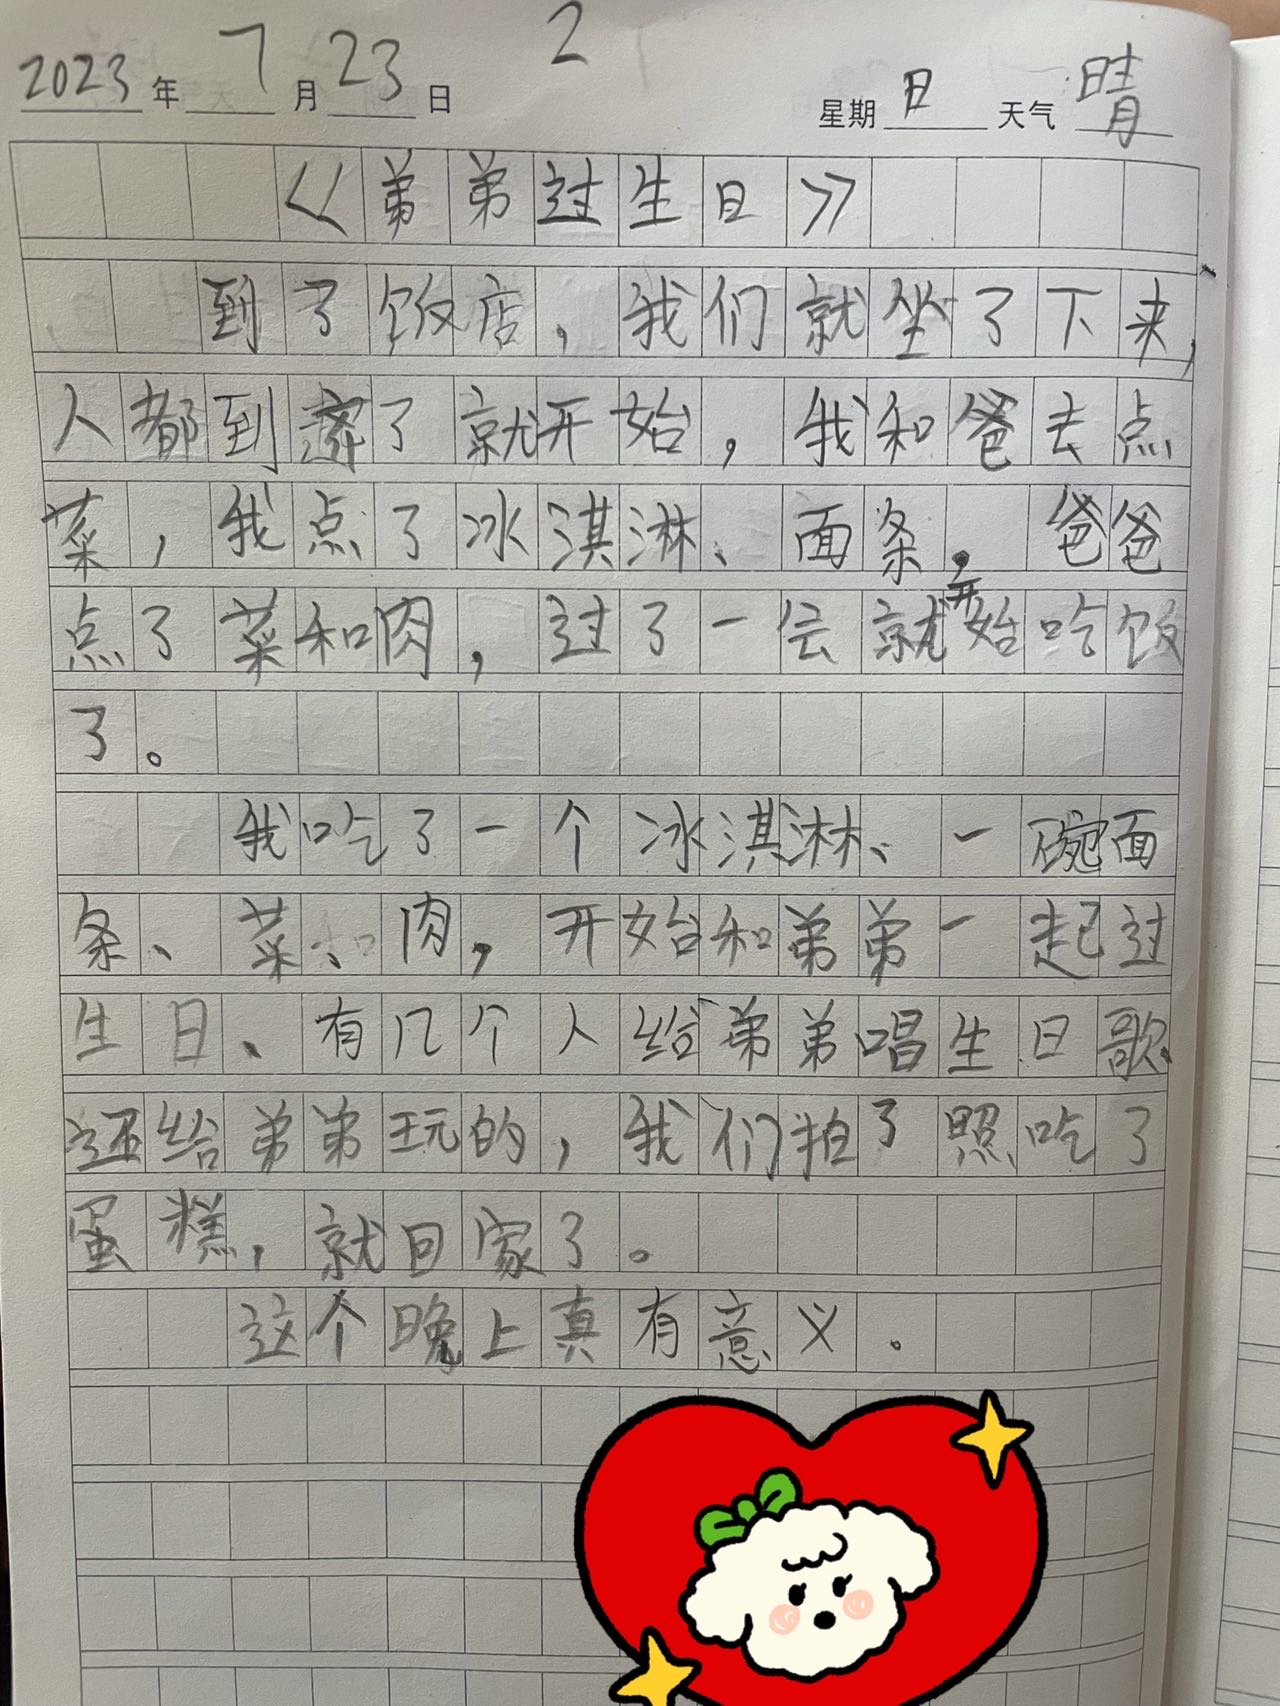 2023年7月23日 2 星期日 天气晴
《弟弟过生日》
到了饭店，我们就坐了下来，
人都到齐了就开始，我和爸去点
菜，我点了冰淇淋、面条，爸爸
点了菜和肉，过了一会就开始吃饭
了。
我吃了一个冰淇淋、一碗面
条、菜、肉，开始和弟弟一起过
生日、有几个人给弟弟唱生日歌、
还给弟弟玩的，我们拍了照吃了
蛋糕，就回家了。
这个晚上真有意义。